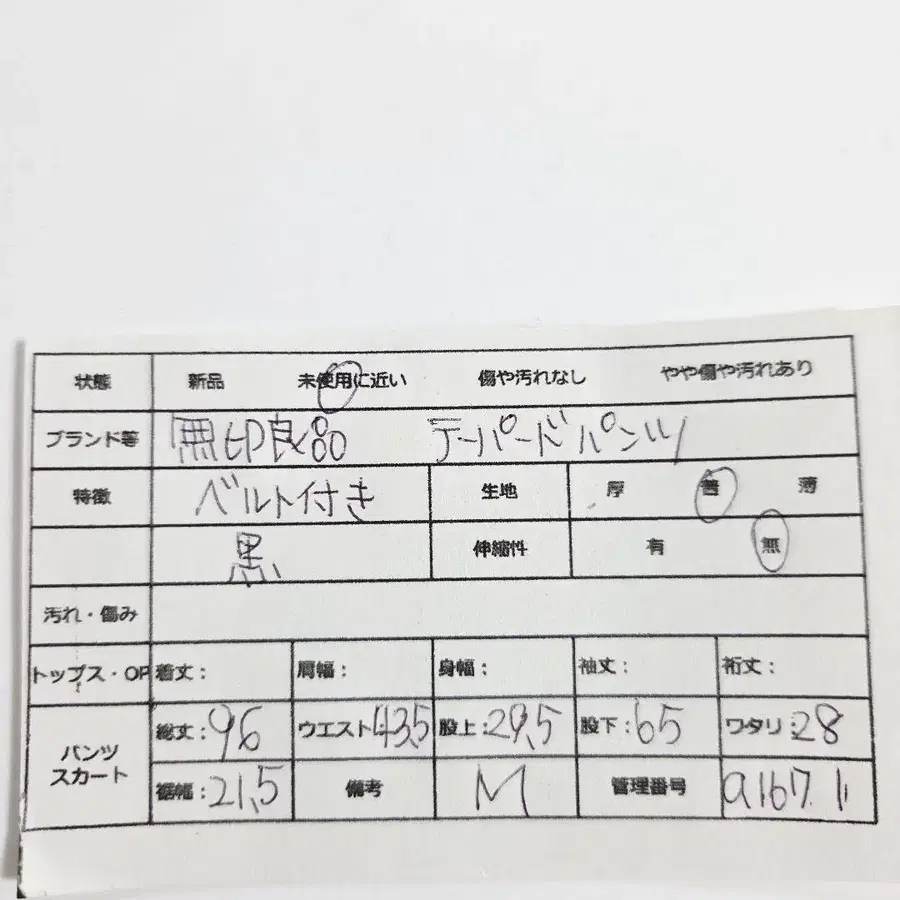 状態 新品 未使用に近い 傷や汚れなし やや傷や汚れあり
ブランド等 無印良品 テーパードパンツ
特徴 ベルト付き 生地 厚 普 薄
黒 伸縮性 有 無
汚れ・傷み
トップス・OP 着丈: 肩幅: 身幅: 袖丈: 裄丈:
パンツ スカート 総丈:96 ウエスト:43.5 股上:29.5 股下:65 ワタリ:28
裾幅:21.5 備考 M 管理番号